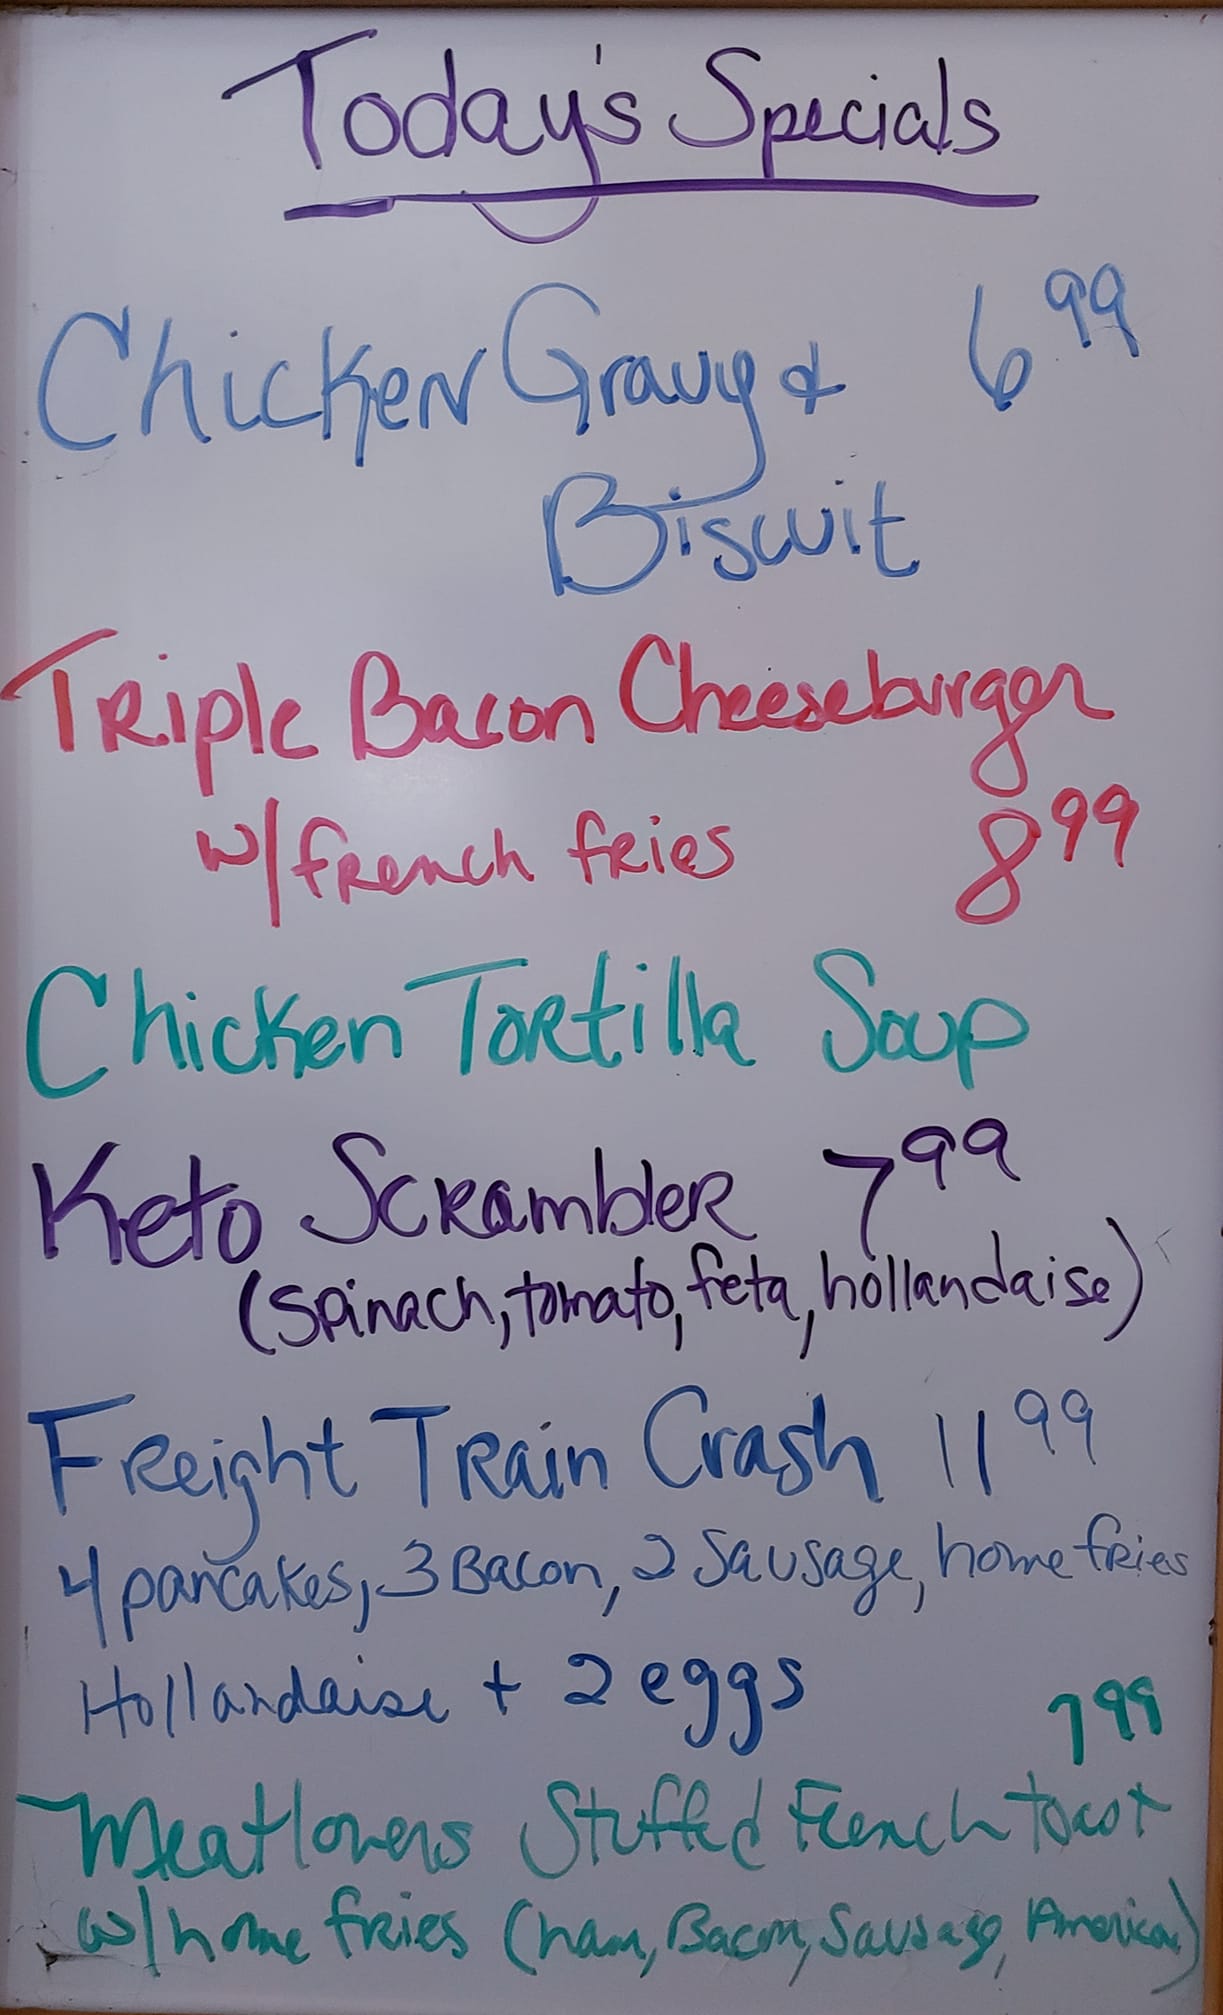 Today's Specials
Chicken Gravy & 6 99
Biscuit
Triple Bacon Cheeseburger
w/french fries 8 99
Chicken Tortilla Soup
Keto Scrambler 7 99
(spinach, tomato, feta, hollandaise)
Freight Train Crash 11 99
4 pancakes, 3 Bacon, 2 Sausage, home fries
Hollandaise + 2 eggs
7 99
Meatlovers Stuffed French toast
w/home fries (ham, Bacon, Sausage, American)